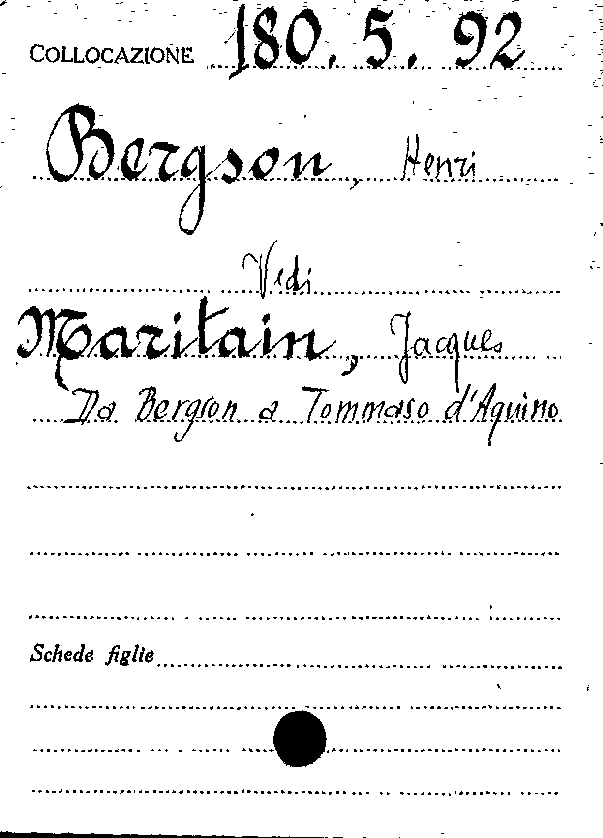 COLLOCAZIONE 180. 5. 92
Bergson, Henri
Vedi
Maritain, Jacques
Da Bergson a Tommaso d'Aquino
Schede figlie